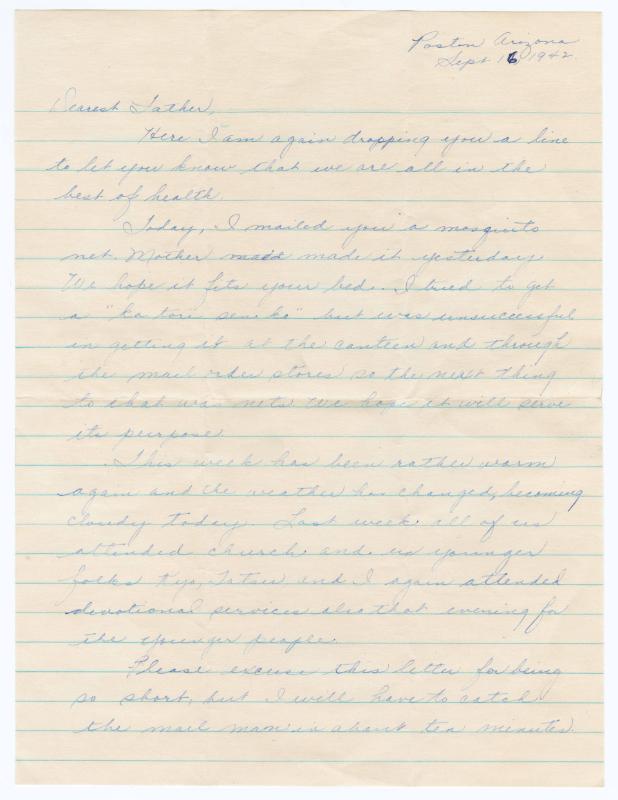 Poston Arizona
Sept 16 1942.
Dearest Father,
Here I am again dropping you a line
to let you know that we are all in the
best of health.
Today, I mailed you a mosquito
net. Mother maid made it yesterday.
We hope it fits your bed. I tried to get
a "ka tori senko" but was unsuccessful
in getting it at the canteen and through
the mail order stores so the next thing
to that was nets. We hope it will serve
its purpose.
This week has been rather warm
again and the weather has changed, becoming
cloudy today. Last week all of us
attended church and us younger
folks Kyo, Tatsu and I again attended
devotional services also that evening for
the younger people.
Please excuse this letter for being
so short, but I will have to catch
the mail man in about ten minutes.